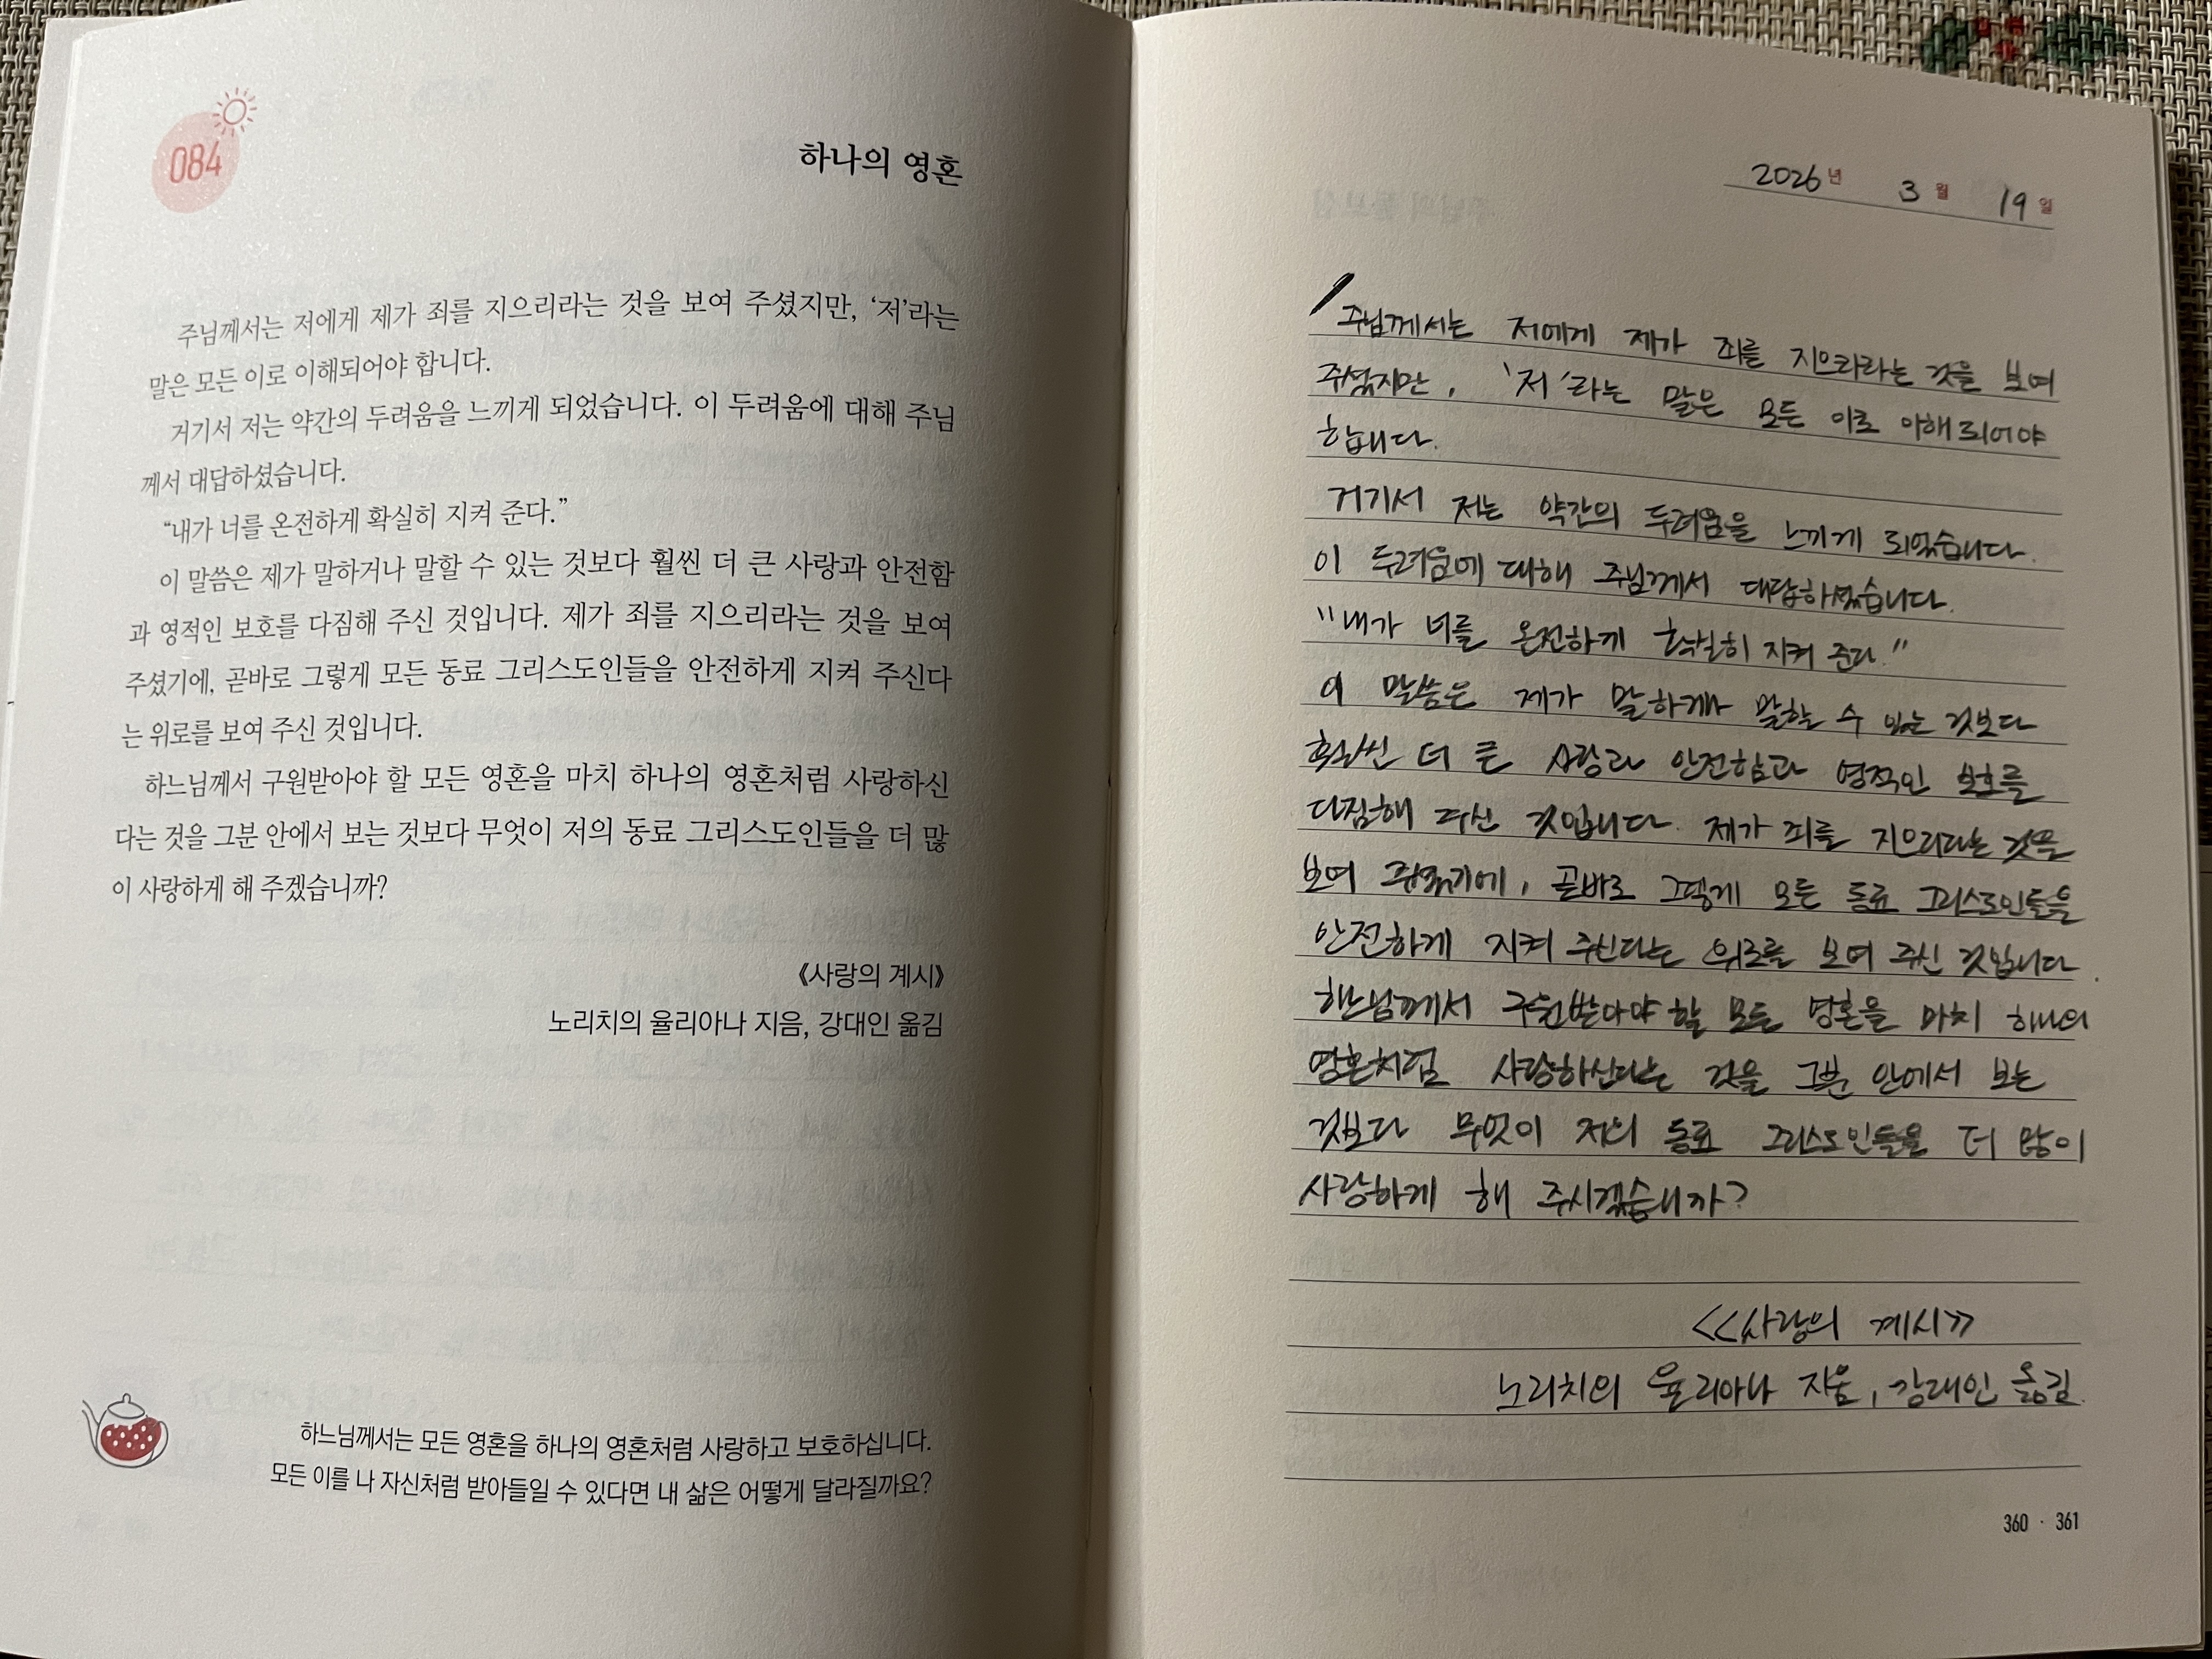 084
하나의 영혼
주님께서는 저에게 제가 죄를 지으리라는 것을 보여 주셨지만, ‘저’라는
말은 모든 이로 이해되어야 합니다.
거기서 저는 약간의 두려움을 느끼게 되었습니다. 이 두려움에 대해 주님
께서 대답하셨습니다.
“내가 너를 온전하게 확실히 지켜 준다.”
이 말씀은 제가 말하거나 말할 수 있는 것보다 훨씬 더 큰 사랑과 안전함
과 영적인 보호를 다짐해 주신 것입니다. 제가 죄를 지으리라는 것을 보여
주셨기에, 곧바로 그렇게 모든 동료 그리스도인들을 안전하게 지켜 주신다
는 위로를 보여 주신 것입니다.
하느님께서 구원받아야 할 모든 영혼을 마치 하나의 영혼처럼 사랑하신
다는 것을 그분 안에서 보는 것보다 무엇이 저의 동료 그리스도인들을 더 많
이 사랑하게 해 주겠습니까?
《사랑의 계시》
노리치의 율리아나 지음, 강대인 옮김
하느님께서는 모든 영혼을 하나의 영혼처럼 사랑하고 보호하십니다.
모든 이를 나 자신처럼 받아들일 수 있다면 내 삶은 어떻게 달라질까요?
2026년 3월 19일
주님께서는 저에게 제가 죄를 지으리라는 것을 보여
주셨지만, '저'라는 말은 모든 이로 이해되어야
합니다.
거기서 저는 약간의 두려움을 느끼게 되었습니다.
이 두려움에 대해 주님께서 대답하셨습니다.
"내가 너를 온전하게 확실히 지켜 준다."
이 말씀은 제가 말하거나 말할 수 있는 것보다
훨씬 더 큰 사랑과 안전함과 영적인 보호를
다짐해 주신 것입니다. 제가 죄를 지으리라는 것을
보여 주셨기에, 곧바로 그렇게 모든 동료 그리스도인들을
안전하게 지켜 주신다는 위로를 보여 주신 것입니다.
하느님께서 구원받아야 할 모든 영혼을 마치 하나의
영혼처럼 사랑하신다는 것을 그분 안에서 보는
것보다 무엇이 저의 동료 그리스도인들을 더 많이
사랑하게 해 주시겠습니까?
<<사랑의 계시>>
노리치의 율리아나 지음, 강대인 옮김.
360 · 361